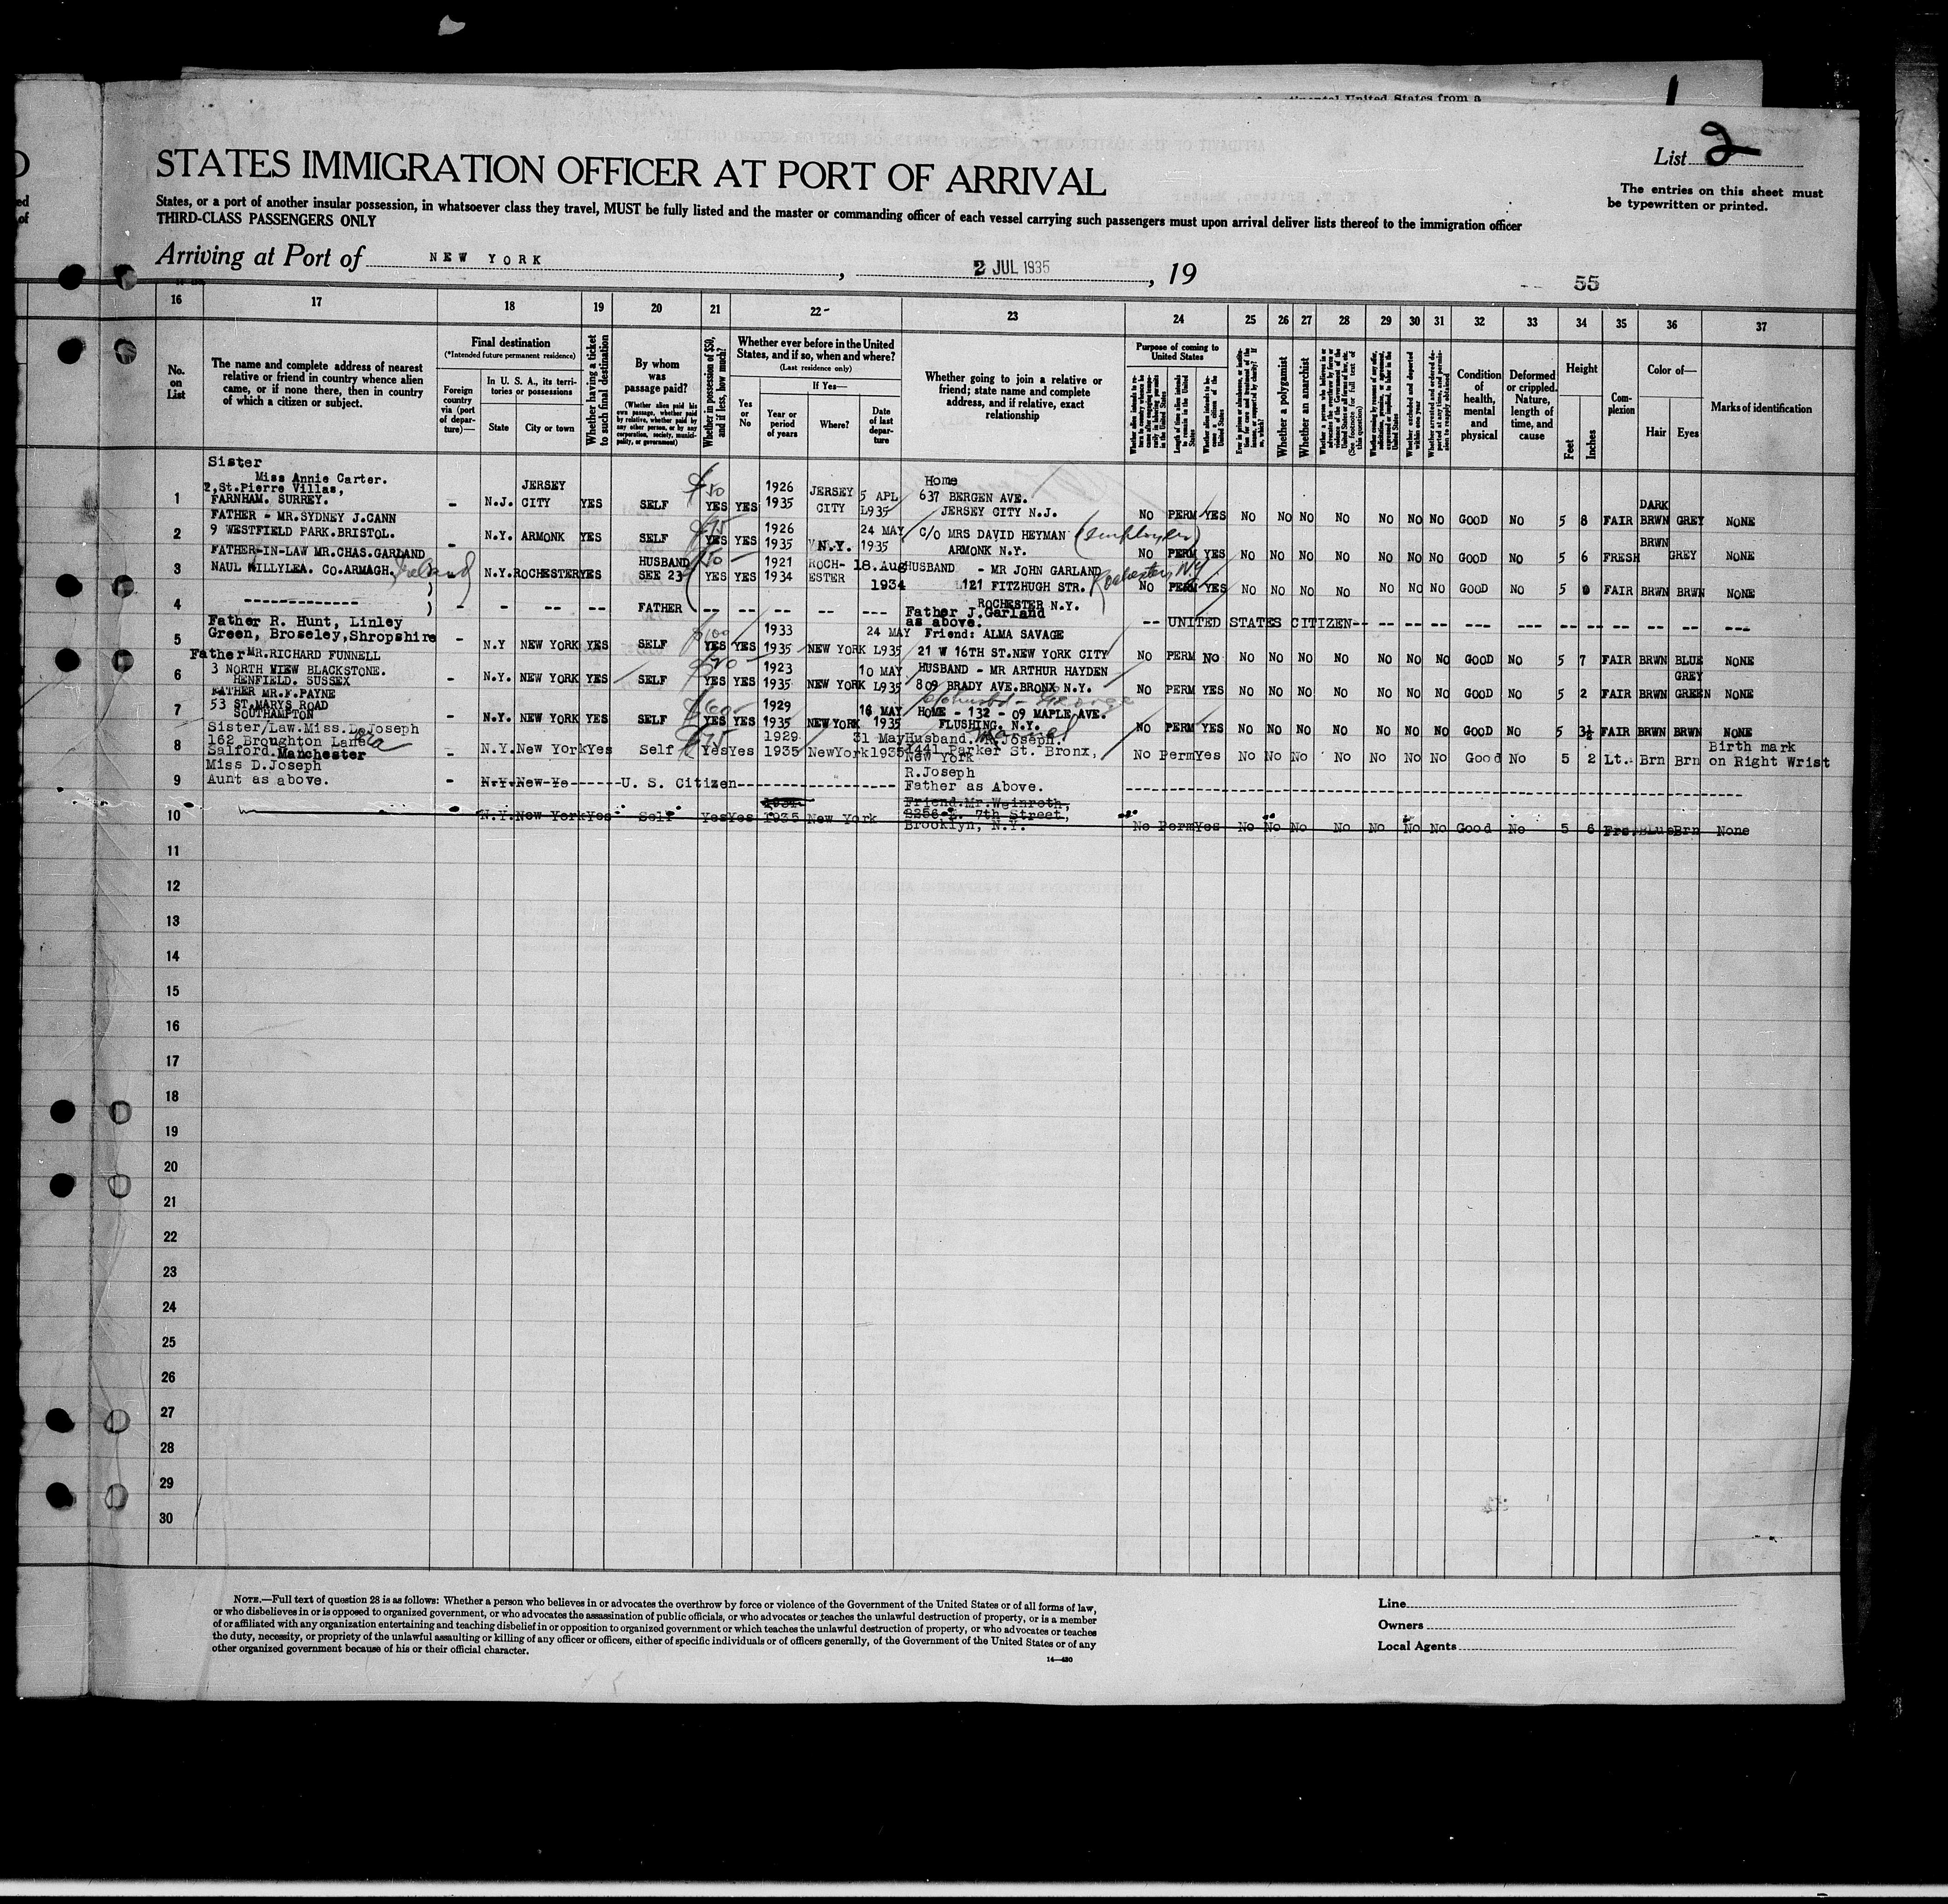 continental United States from a
List 2
STATES IMMIGRATION OFFICER AT PORT OF ARRIVAL
The entries on this sheet must
be typewritten or printed.
States, or a port of another insular possession, in whatsoever class they travel, MUST be fully listed and the master or commanding officer of each vessel carrying such passengers must upon arrival deliver lists thereof to the immigration officer
THIRD-CLASS PASSENGERS ONLY
Arriving at Port of NEW YORK, 2 JUL 1935, 19
55
16 17 18 19 20 21 22 23 24 25 26 27 28 29 30 31 32 33 34 35 36 37
No. on List
The name and complete address of nearest
relative or friend in country whence alien
came, or if none there, then in country
of which a citizen or subject.
Final destination
(*Intended future permanent residence)
Foreign country via (port of departure)—
In U. S. A., its territories or possessions
State
City or town
Whether having a ticket to such final destination
By whom was passage paid?
(Whether alien paid his own passage, whether paid by relative, whether paid by any other person, or by any corporation, society, municipality, or government)
Whether in possession of $50, and if less, how much?
Whether ever before in the United States, and if so, when and where?
(Last residence only)
Yes or No
If Yes—
Year or period of years
Where?
Date of last departure
Whether going to join a relative or
friend; state name and complete
address, and if relative, exact
relationship
Purpose of coming to United States
Length of time alien intends to remain in the United States
Whether alien intends to become a citizen of the United States
Whether a polygamist
Whether an anarchist
Condition of health, mental and physical
Deformed or crippled. Nature, length of time, and cause
Height
Feet
Inches
Complexion
Color of—
Hair
Eyes
Marks of identification
1 Sister
Miss Annie Carter.
2,St.Pierre Villas,
FARNHAM. SURREY. - N.J. JERSEY CITY YES SELF $50 YES YES 1926 1935 JERSEY CITY 5 APL L935 Home 637 BERGEN AVE. JERSEY CITY N.J. NO PERM YES NO NO NO NO NO NO NO GOOD NO 5 8 FAIR DARK BRWN GREY NONE
2 FATHER - MR.SYDNEY J.CANN
9 WESTFIELD PARK.BRISTOL. - N.Y. ARMONK YES SELF $75 YES YES 1926 1935 N.Y. 24 MAY 1935 C/O MRS DAVID HEYMAN (employer) ARMONK N.Y. NO PERM YES NO NO NO NO NO NO NO GOOD NO 5 6 FRESH BRWN GREY NONE
3 FATHER-IN-LAW MR.CHAS.GARLAND
NAUL KILLYLEA. CO.ARMAGH. Ireland N.Y. ROCHESTER YES HUSBAND SEE 23 50- YES YES 1921 1934 ROCHESTER 18.Aug 1934 HUSBAND - MR JOHN GARLAND 121 FITZHUGH STR. ROCHESTER N.Y. Rochester NY NO PERM YES NO NO NO NO NO NO NO GOOD NO 5 0 FAIR BRWN BRWN NONE
4 -------------- ) - - -- -- FATHER -- -- -- -- --- Father J.Garland as above. -- UNITED STATES CITIZEN-- -- -- -- -- --- --- -- -- -- -- -- ---
5 Father R. Hunt, Linley
Green, Broseley,Shropshire - N.Y NEW YORK YES SELF $100 YES YES 1933 1935 NEW YORK 24 MAY L935 Friend: ALMA SAVAGE 21 W 16TH ST.NEW YORK CITY NO PERM NO NO NO NO NO NO NO NO GOOD NO 5 7 FAIR BRWN BLUE NONE
6 Father MR.RICHARD FUNNELL
3 NORTH VIEW BLACKSTONE.
HENFIELD. SUSSEX - N.Y. NEW YORK YES SELF YES YES 1923 1935 NEW YORK 10 MAY L935 HUSBAND - MR ARTHUR HAYDEN 809 BRADY AVE.BRONX N.Y. NO PERM YES NO NO NO NO NO NO NO GOOD NO 5 2 FAIR BRWN GREY GREEN NONE
7 FATHER MR.F.PAYNE
53 ST.MARYS ROAD
SOUTHAMPTON - N.Y. NEW YORK YES SELF $60- YES YES 1929 1935 NEW YORK 16 MAY 1935 husbd - George HOME - 132 - 09 MAPLE AVE. FLUSHING. N.Y. NO PERM YES NO NO NO NO NO NO NO GOOD NO 5 3½ FAIR BRWN BRWN NONE
8 Sister/Law.Miss.D.Joseph
162 Broughton Lane
Salford.Manchester - N.Y. New York Yes Self $75 Yes Yes 1929 1935 NewYork 31 May 1935 Husband.Mr.Joseph. 1441 Parker St. Bronx, New York No Perm Yes No No No No No No No Good No 5 2 Lt. Brn Brn Birth mark on Right Wrist
9 Miss D.Joseph
Aunt as above. - N.Y.New Yo------U. S. Citizen------------------ R.Joseph Father as Above. ----------------
10 N.Y. New York Yes Self Yes Yes 1934 1935 New York Friend.Mr.Weinroth, 7th Street, Brooklyn, N.Y. No Perm Yes No No No No No No No Good No 5 6 Frs. Blue Brn None
11
12
13
14
15
16
17
18
19
20
21
22
23
24
25
26
27
28
29
30
NOTE.—Full text of question 28 is as follows: Whether a person who believes in or advocates the overthrow by force or violence of the Government of the United States or of all forms of law,
or who disbelieves in or is opposed to organized government, or who advocates the assassination of public officials, or who advocates or teaches the unlawful destruction of property, or is a member
of or affiliated with any organization entertaining and teaching disbelief in or opposition to organized government or which teaches the unlawful destruction of property, or who advocates or teaches
the duty, necessity, or propriety of the unlawful assaulting or killing of any officer or officers, either of specific individuals or of officers generally, of the Government of the United States or of any
other organized government because of his or their official character.
14—430
Line
Owners
Local Agents